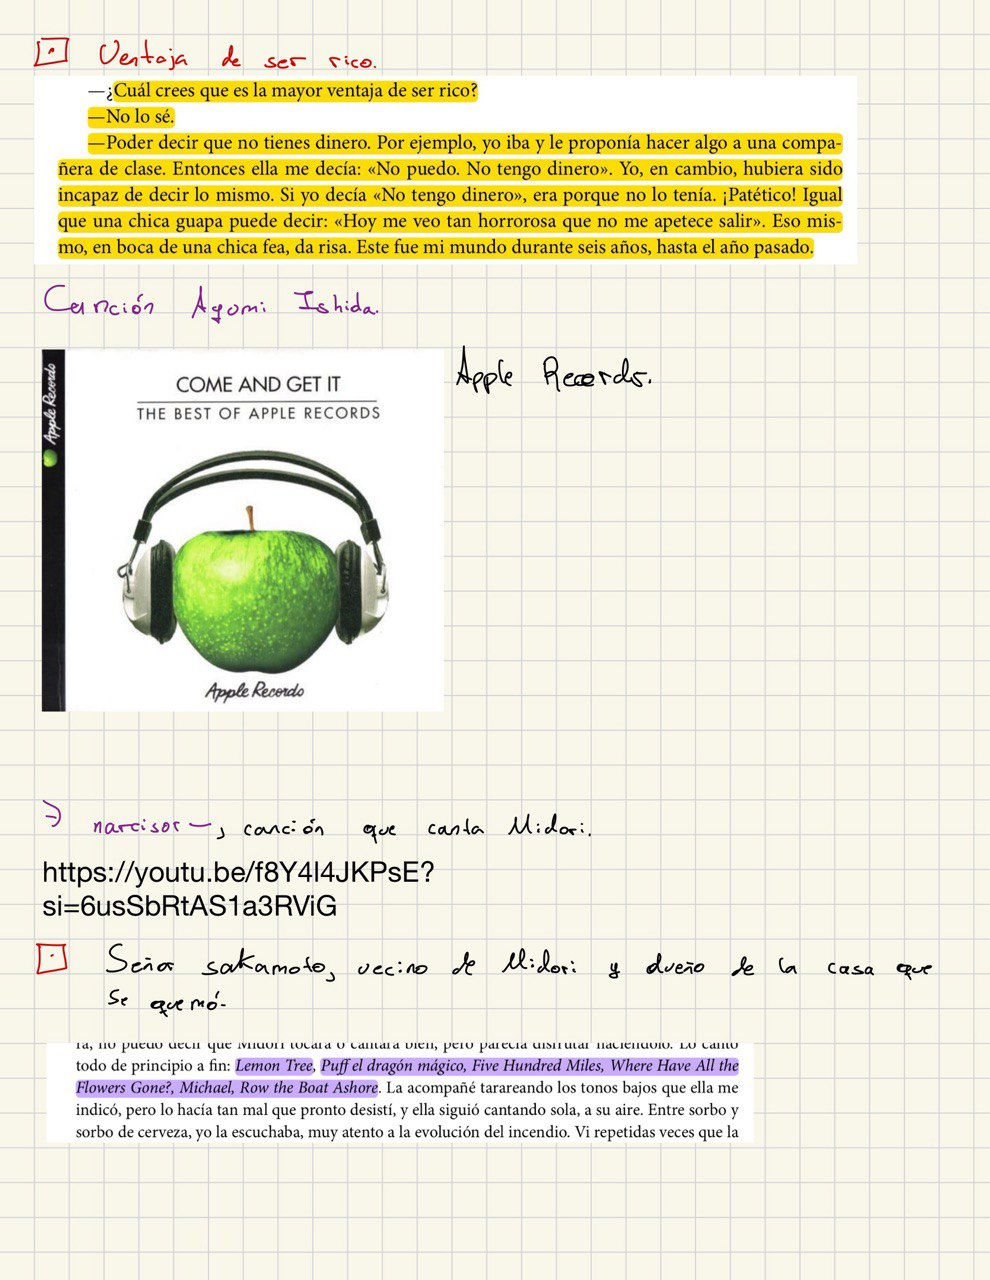 Ventaja de ser rico.
—¿Cuál crees que es la mayor ventaja de ser rico?
—No lo sé.
—Poder decir que no tienes dinero. Por ejemplo, yo iba y le proponía hacer algo a una compa-
ñera de clase. Entonces ella me decía: «No puedo. No tengo dinero». Yo, en cambio, hubiera sido
incapaz de decir lo mismo. Si yo decía «No tengo dinero», era porque no lo tenía. ¡Patético! Igual
que una chica guapa puede decir: «Hoy me veo tan horrorosa que no me apetece salir». Eso mis-
mo, en boca de una chica fea, da risa. Este fue mi mundo durante seis años, hasta el año pasado.
Canción Ayomi Ishida.
Apple Records
COME AND GET IT
THE BEST OF APPLE RECORDS
Apple Records
Apple Records.
→ narcisor →, canción que canta Midori.
https://youtu.be/f8Y4l4JKPsE?
si=6usSbRtAS1a3RViG
Señor sakamoto, vecino de Midori y dueño de la casa que
se quemó.
ra, no puedo decir que Midori tocara o cantara bien, pero parecía disfrutar haciéndolo. Lo cantó
todo de principio a fin: Lemon Tree, Puff el dragón mágico, Five Hundred Miles, Where Have All the
Flowers Gone?, Michael, Row the Boat Ashore. La acompañé tarareando los tonos bajos que ella me
indicó, pero lo hacía tan mal que pronto desistí, y ella siguió cantando sola, a su aire. Entre sorbo y
sorbo de cerveza, yo la escuchaba, muy atento a la evolución del incendio. Vi repetidas veces que la